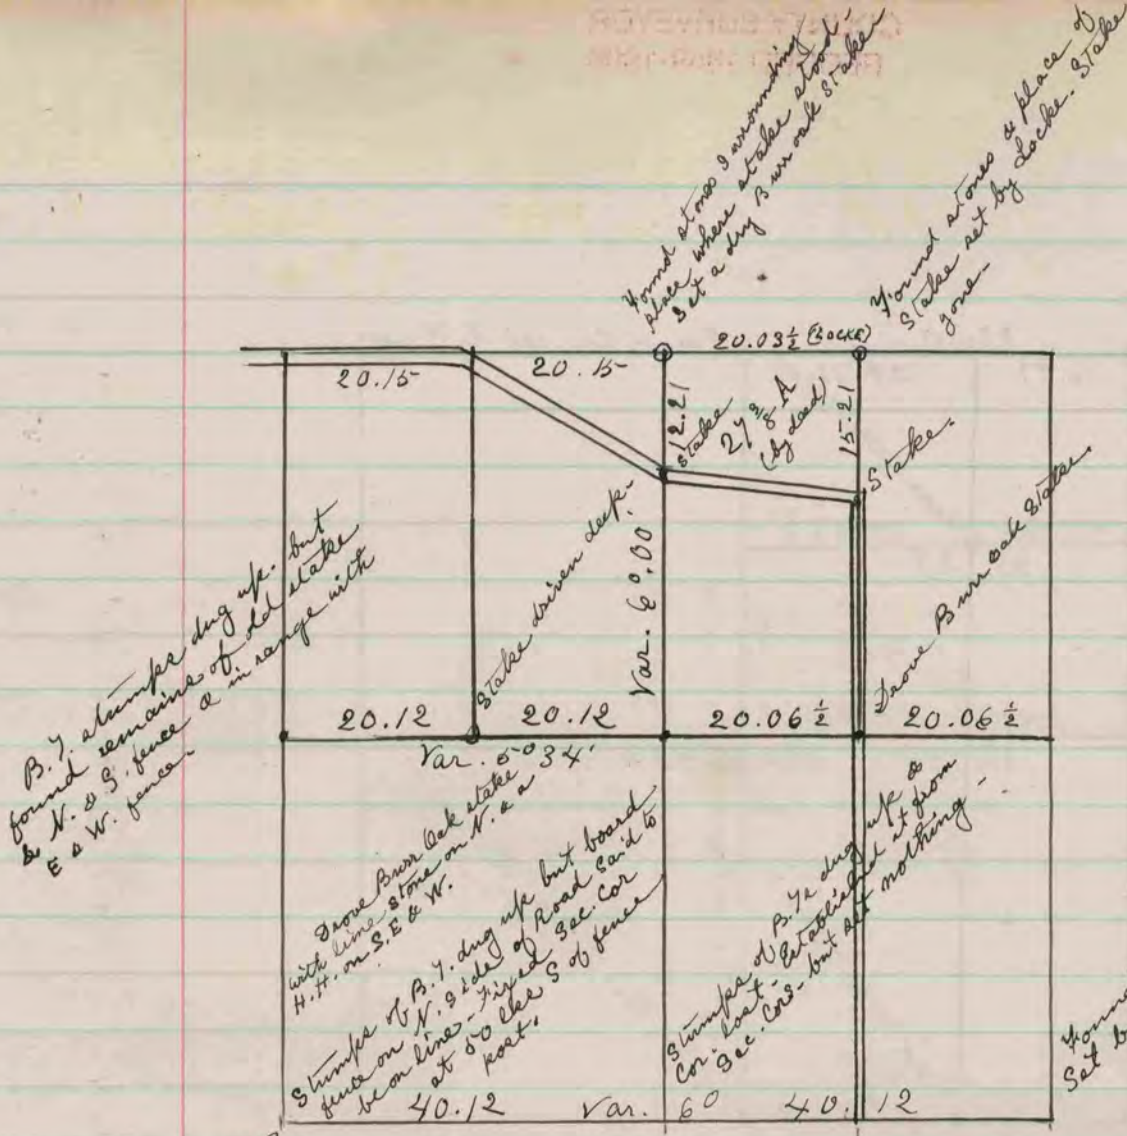 Found stones surrounding
place where stake stood-
Set a dry Burr oak Stake
Found stones & place of
Stake set by Locke. Stake
gone-
20.03½ (LOCKE)
20.15
20.15
12.21
Stake
27⅜ A
(by deed)
15.21
Stake.
B.T. stumps dug up. but
found remains of old stake
& N. & S. fence & in range with
E & W. fence-
Stake driven deep-
Var. 6°.00
Drove Burr oak Stake.
20.12
20.12
20.06½
20.06½
Var. 5°34'
Drove Burr Oak stake
with lime stone on N. & a
H.H. on S.E & W.
Stumps of B.T. dug up but board
fence on N. Side of Road Said to
be on line - Fixed Sec. Cor
at 50 lks S of fence
post.
Stumps of B.Ts dug up &
Cor. Lost - Established it from
Sec. Cors - but set nothing -
Set b
40.12
Var. 6°
40.12